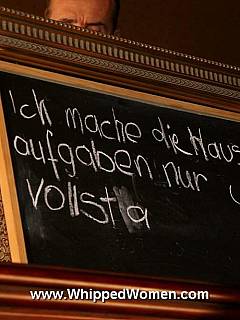 Ich mache die Haus
aufgaben nur
vollstä
www.WhippedWomen.com